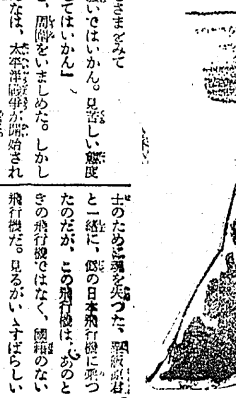 さまをみて
いではいかん。見苦しい態度
てはいかん』
、周圍をいましめた。しかし
なは、太平洋戰爭が開始され
士のために魂を失つた、原君
と一緒に、僞の日本飛行機に乘つ
たのだが、この飛行機は、あのと
きの飛行機ではなく、國籍のない
飛行機だ。見るがいゝすばらしい